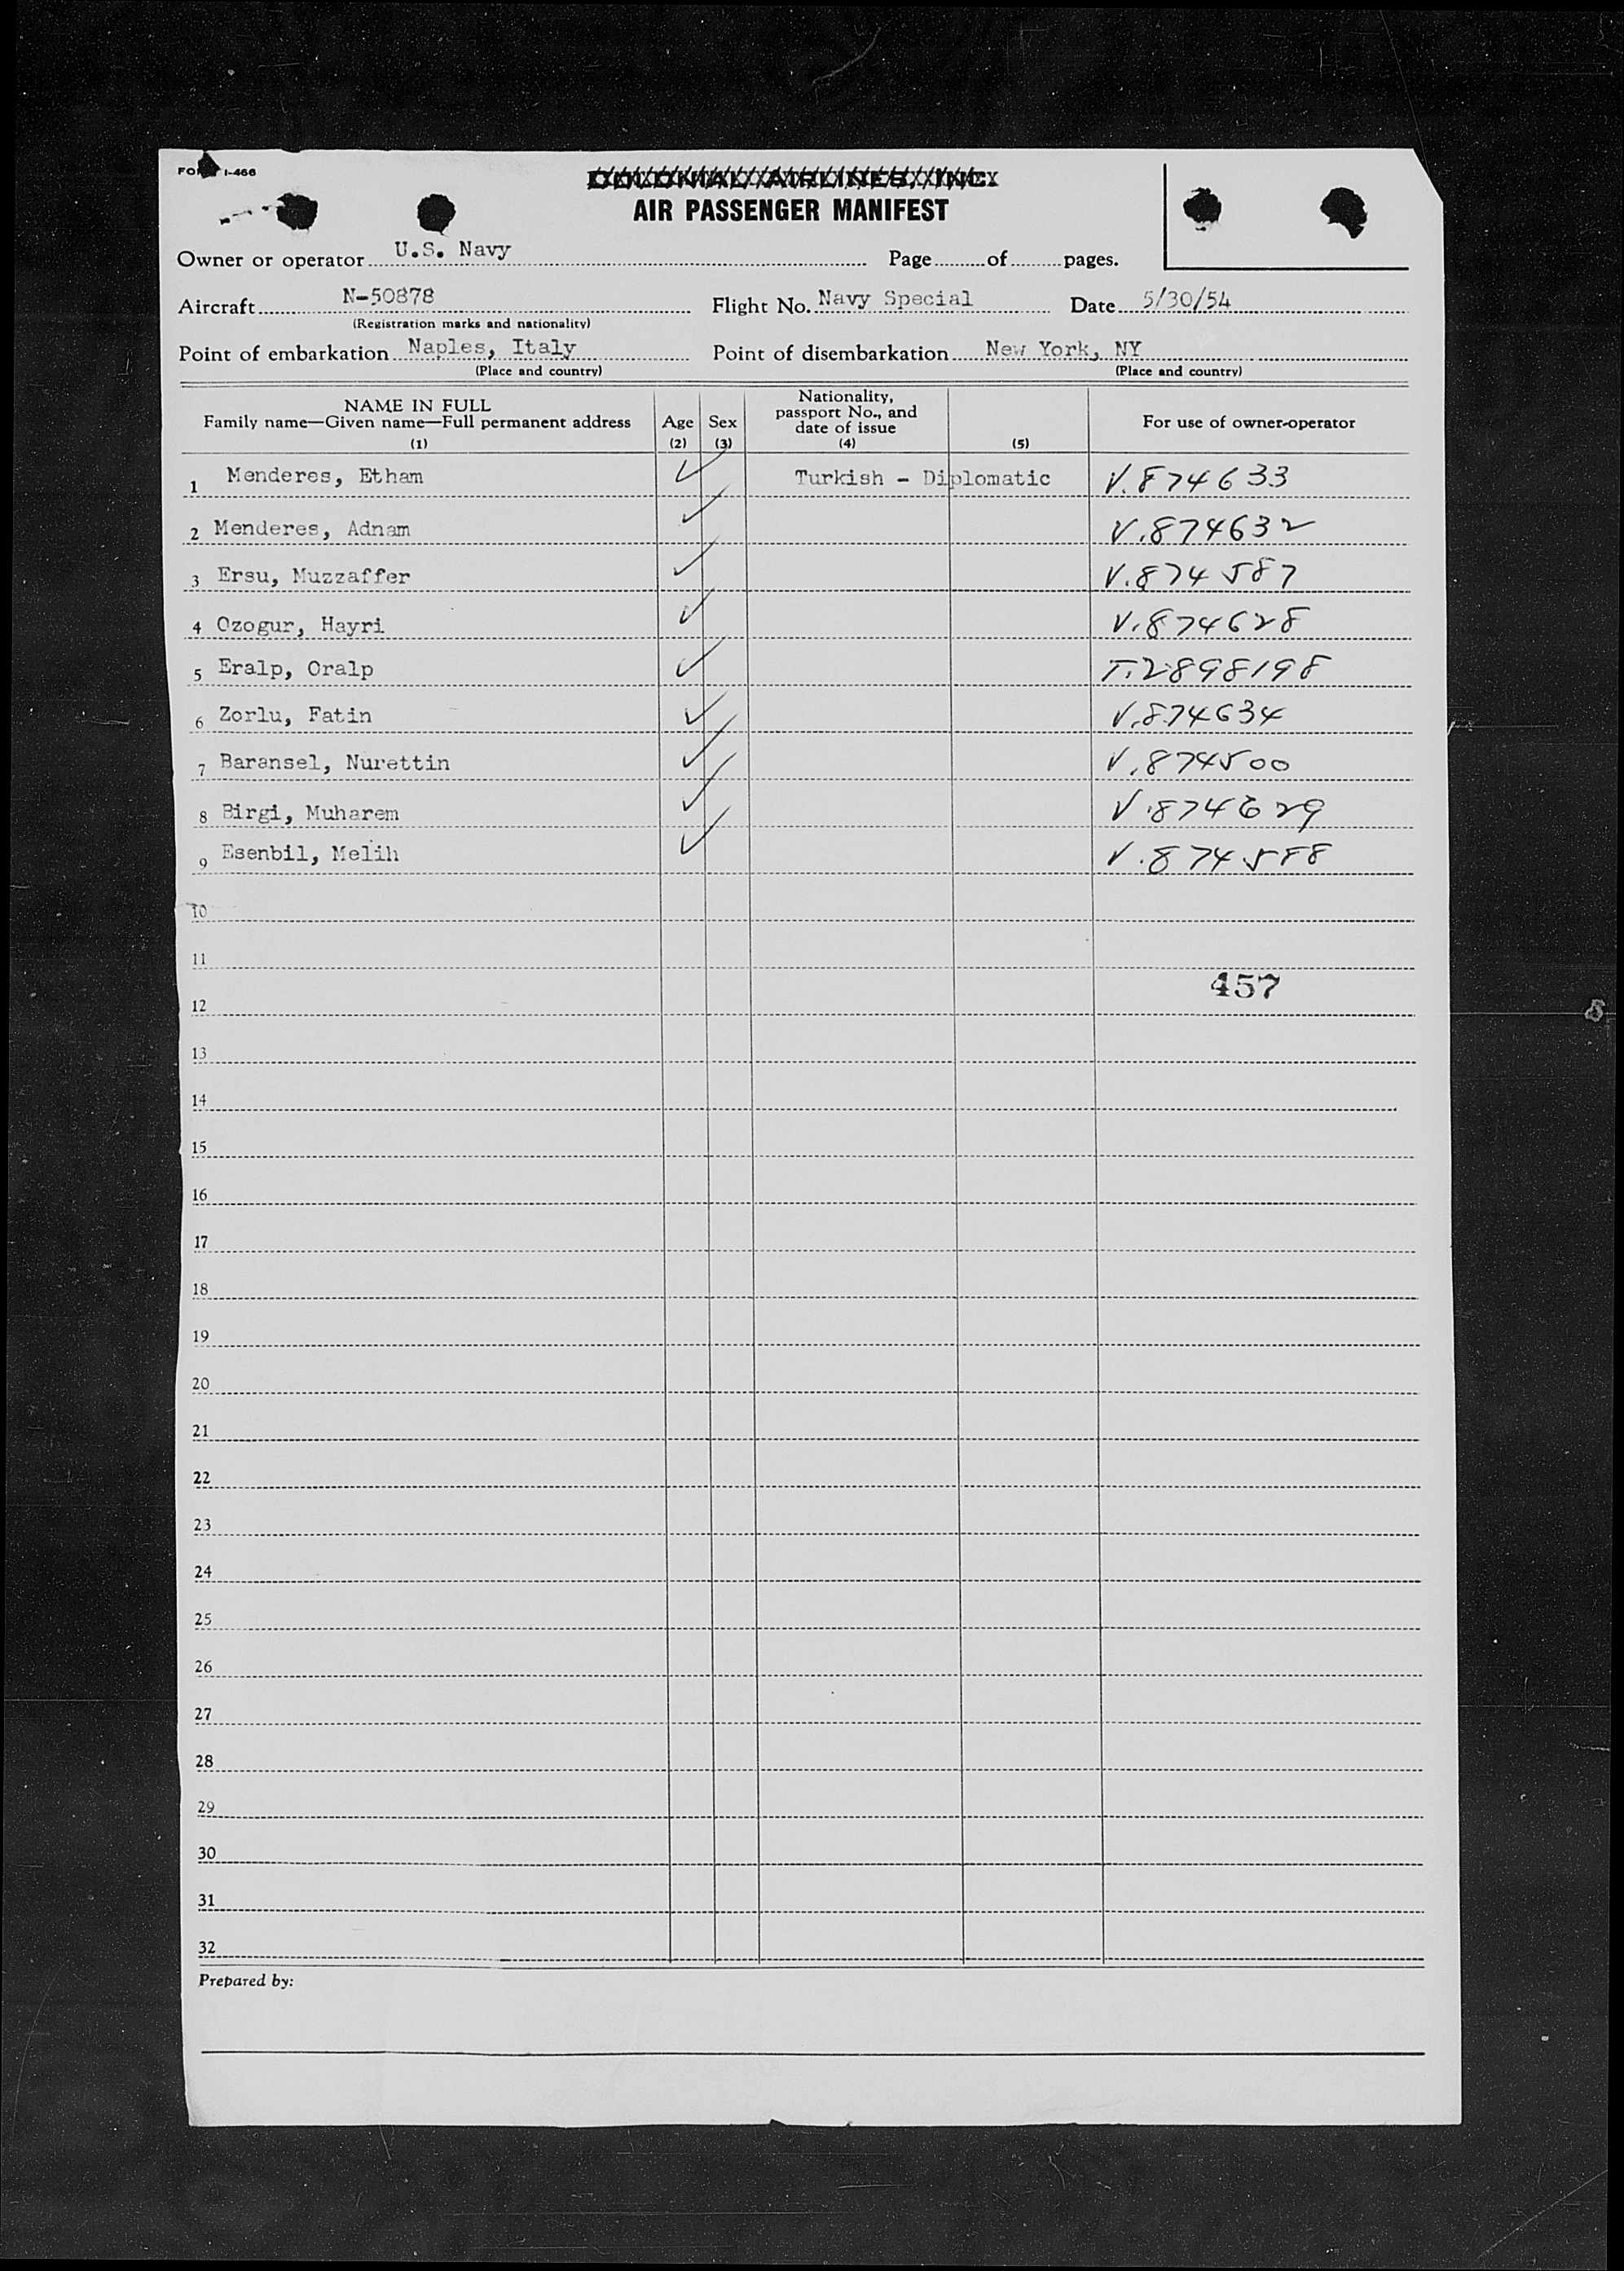 FORM I-466
COLONIAL AIRLINES, INC.
AIR PASSENGER MANIFEST
Owner or operator U.S. Navy Page of pages.
Aircraft N-50878 Flight No. Navy Special Date 5/30/54
(Registration marks and nationality)
Point of embarkation Naples, Italy Point of disembarkation New York, NY
(Place and country) (Place and country)
NAME IN FULL
Family name—Given name—Full permanent address
(1)
Age
(2)
Sex
(3)
Nationality,
passport No., and
date of issue
(4)
(5)
For use of owner-operator
1 Menderes, Etham ✓ Turkish - Diplomatic V.874633
2 Menderes, Adnam ✓ V.874632
3 Ersu, Muzzaffer ✓ V.874587
4 Ozogur, Hayri ✓ V.874628
5 Eralp, Oralp ✓ T.2898198
6 Zorlu, Fatin ✓ V.874634
7 Baransel, Nurettin ✓ V.874500
8 Birgi, Muharem ✓ V.874629
9 Esenbil, Melih ✓ V.874588
10
11
457
12
13
14
15
16
17
18
19
20
21
22
23
24
25
26
27
28
29
30
31
32
Prepared by: